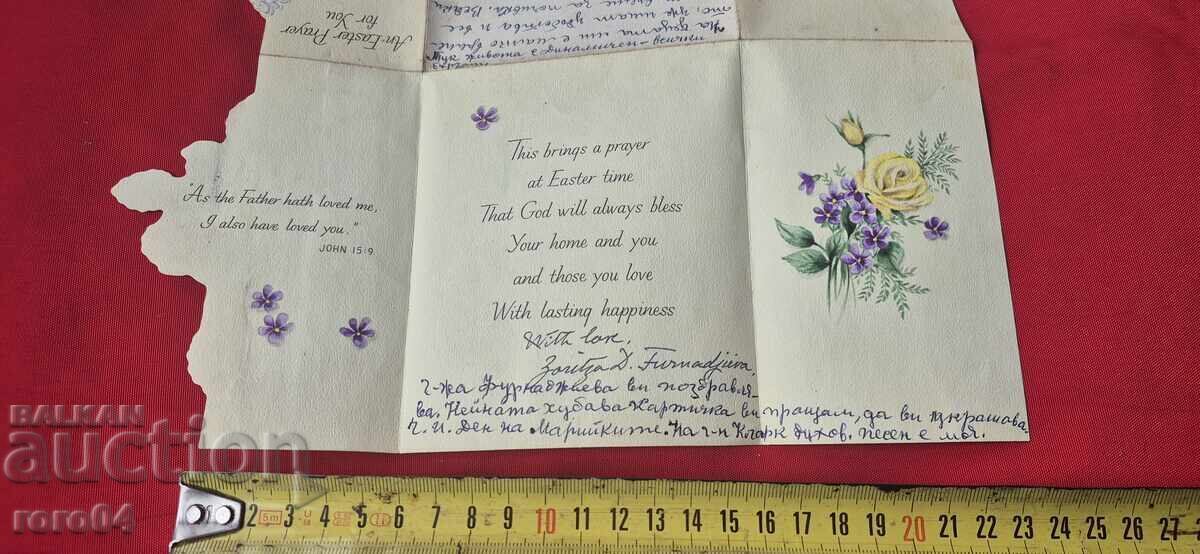 An Easter Prayer
for You
"As the Father hath loved me,
I also have loved you."
JOHN 15:9
This brings a prayer
at Easter time
That God will always bless
Your home and you
and those you love
With lasting happiness
With love,
Zoritza D. Furnadjieva
Г-жа Фурнаджиева ви поздравля-
ва. Нейната хубава картичка ви пращам, да ви украшава.
Ч. И. Ден на Марийките. На г-н Кларк духов. песен е моя.
BALKAN
auction
roro04
1 2 3 4 5 6 7 8 9 10 11 12 13 14 15 16 17 18 19 20 21 22 23 24 25 26 27
5m